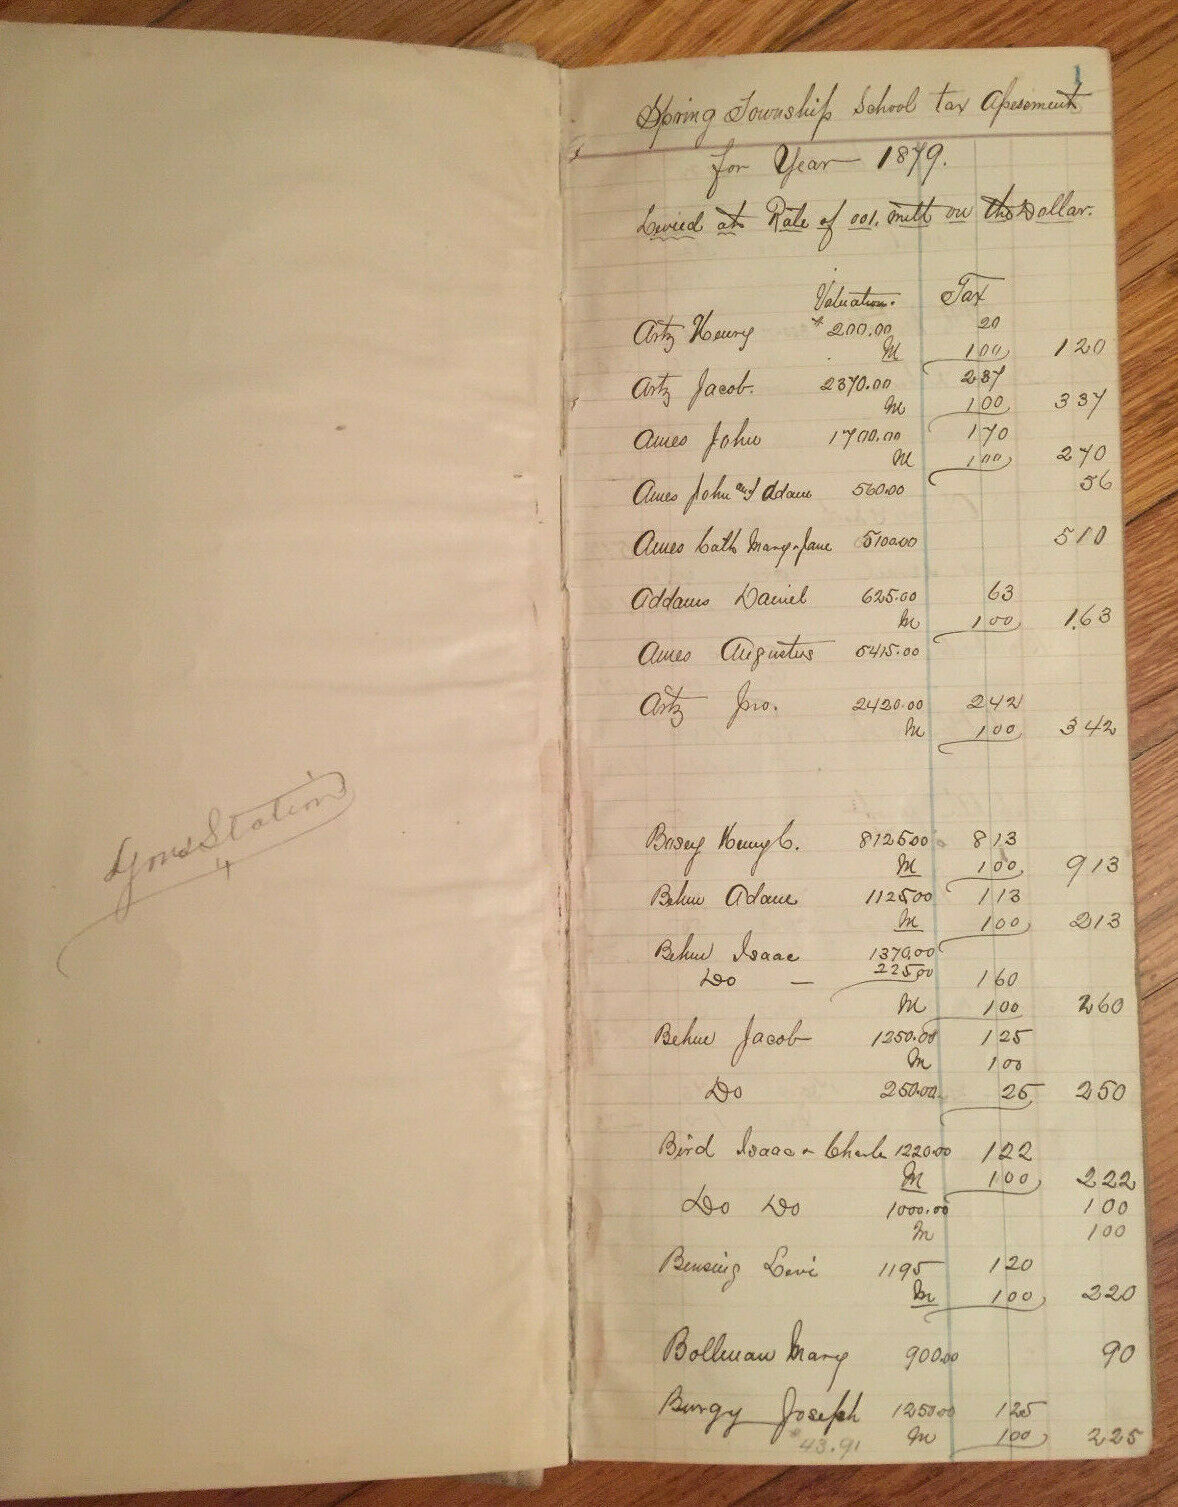 Lyons Station
1
Spring Township School tax Assesement
for Year 1879.
Levied at Rate of 001. mill on the Dollar.
Valuation. Tax
Artz Henry 200.00 20
M 100 120
Artz Jacob. 2370.00 237
M 100 337
Ames John 1700.00 170
M 100 270
Ames John and Adam 560.00 56
Ames Cath Mary + Jane 5100.00 510
Addams Daniel 625.00 63
M 100 1.63
Ames Augustus 5415.00
Artz Jno. 2420.00 242
M 100 342
Henry C. 8125.00 813
M 100 913
Behm Adam 1125.00 113
M 100 213
Behm Isaac 1370.00
Do — 225.00 160
M 100 260
Behm Jacob 1250.00 125
M 100
Do 250.00 25 250
Bird Isaac + Charls 1220.00 122
M 100 222
Do Do 1000.00 100
M 100
Bensing Levi 1195 120
M 100 220
Bollman Mary 900.00 90
Burgy Joseph 1250.00 125
43.91 M 100 225